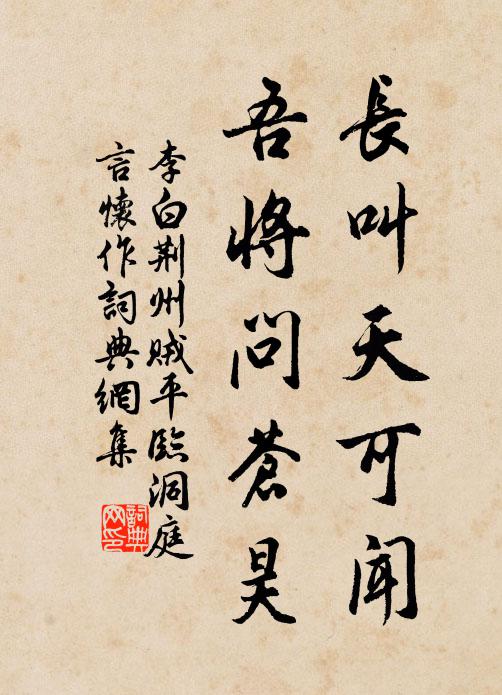 長叫天可聞
吾將問蒼昊
李白荆州賊平臨洞庭
言懷作詞典網集
詞典
网印